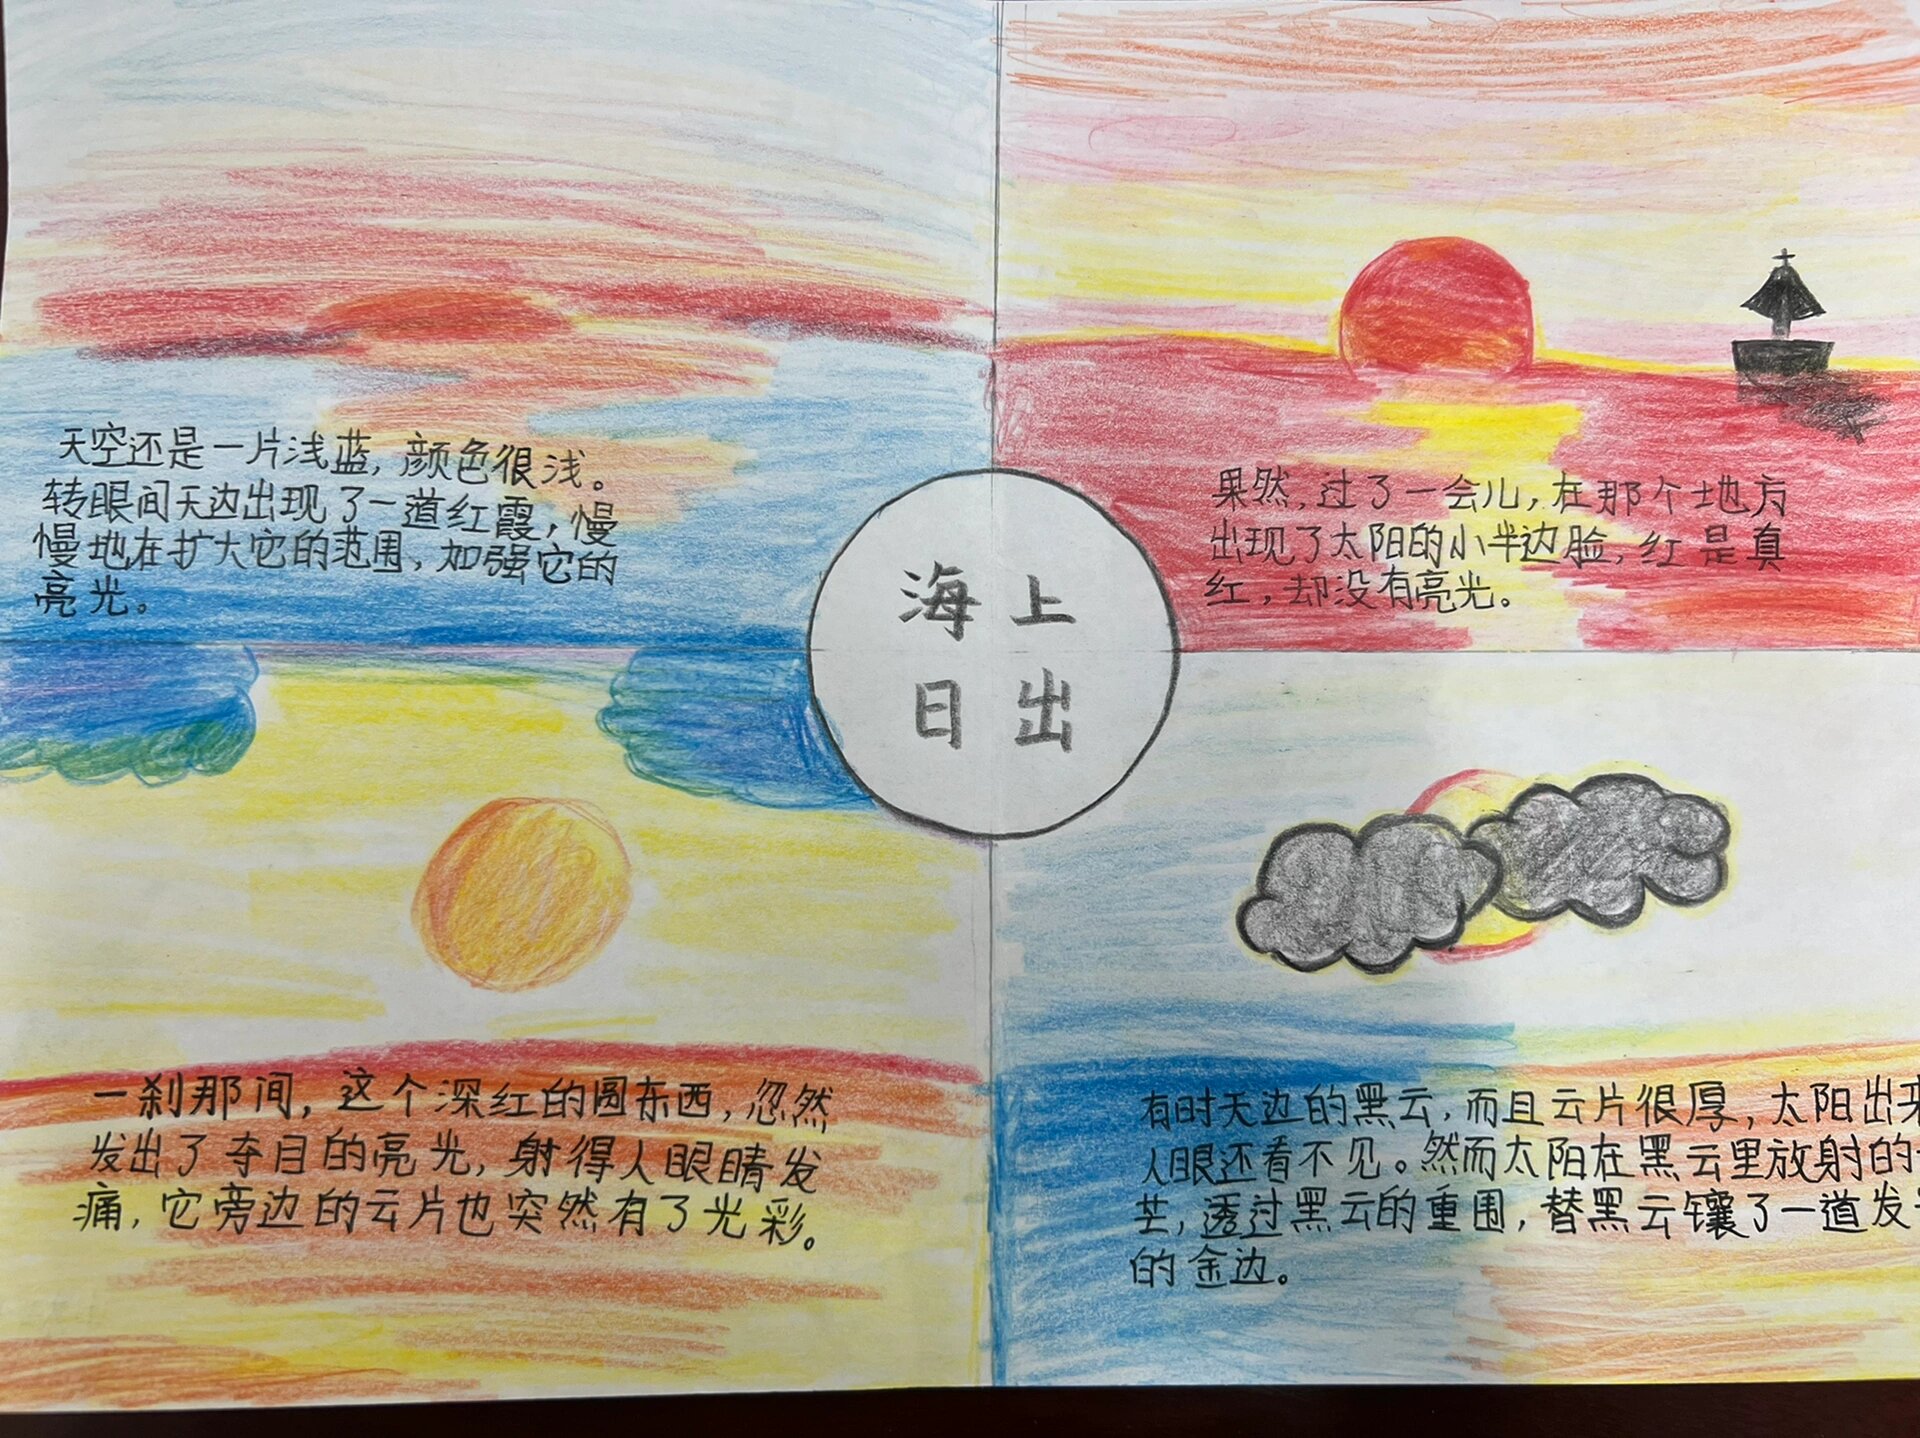 天空还是一片浅蓝,颜色很浅。
转眼间天边出现了一道红霞,慢
慢地在扩大它的范围、加强它的
亮光。
果然,过了一会儿,在那个地方
出现了太阳的小半边脸,红是真
红,却没有亮光。
海上
日出
一刹那间,这个深红的圆东西,忽然
发出了夺目的亮光,射得人眼睛发
痛,它旁边的云片也突然有了光彩。
有时天边的黑云,而且云片很厚,太阳出来
人眼还看不见。然而太阳在黑云里放射的
芒,透过黑云的重围,替黑云镶了一道发
的金边。